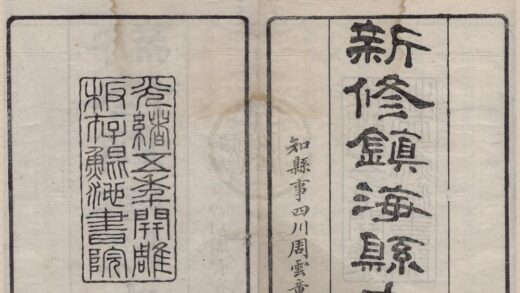 新修鎮海縣
知縣事四川周雲章
光緒五年開雕
板存鯤池書院